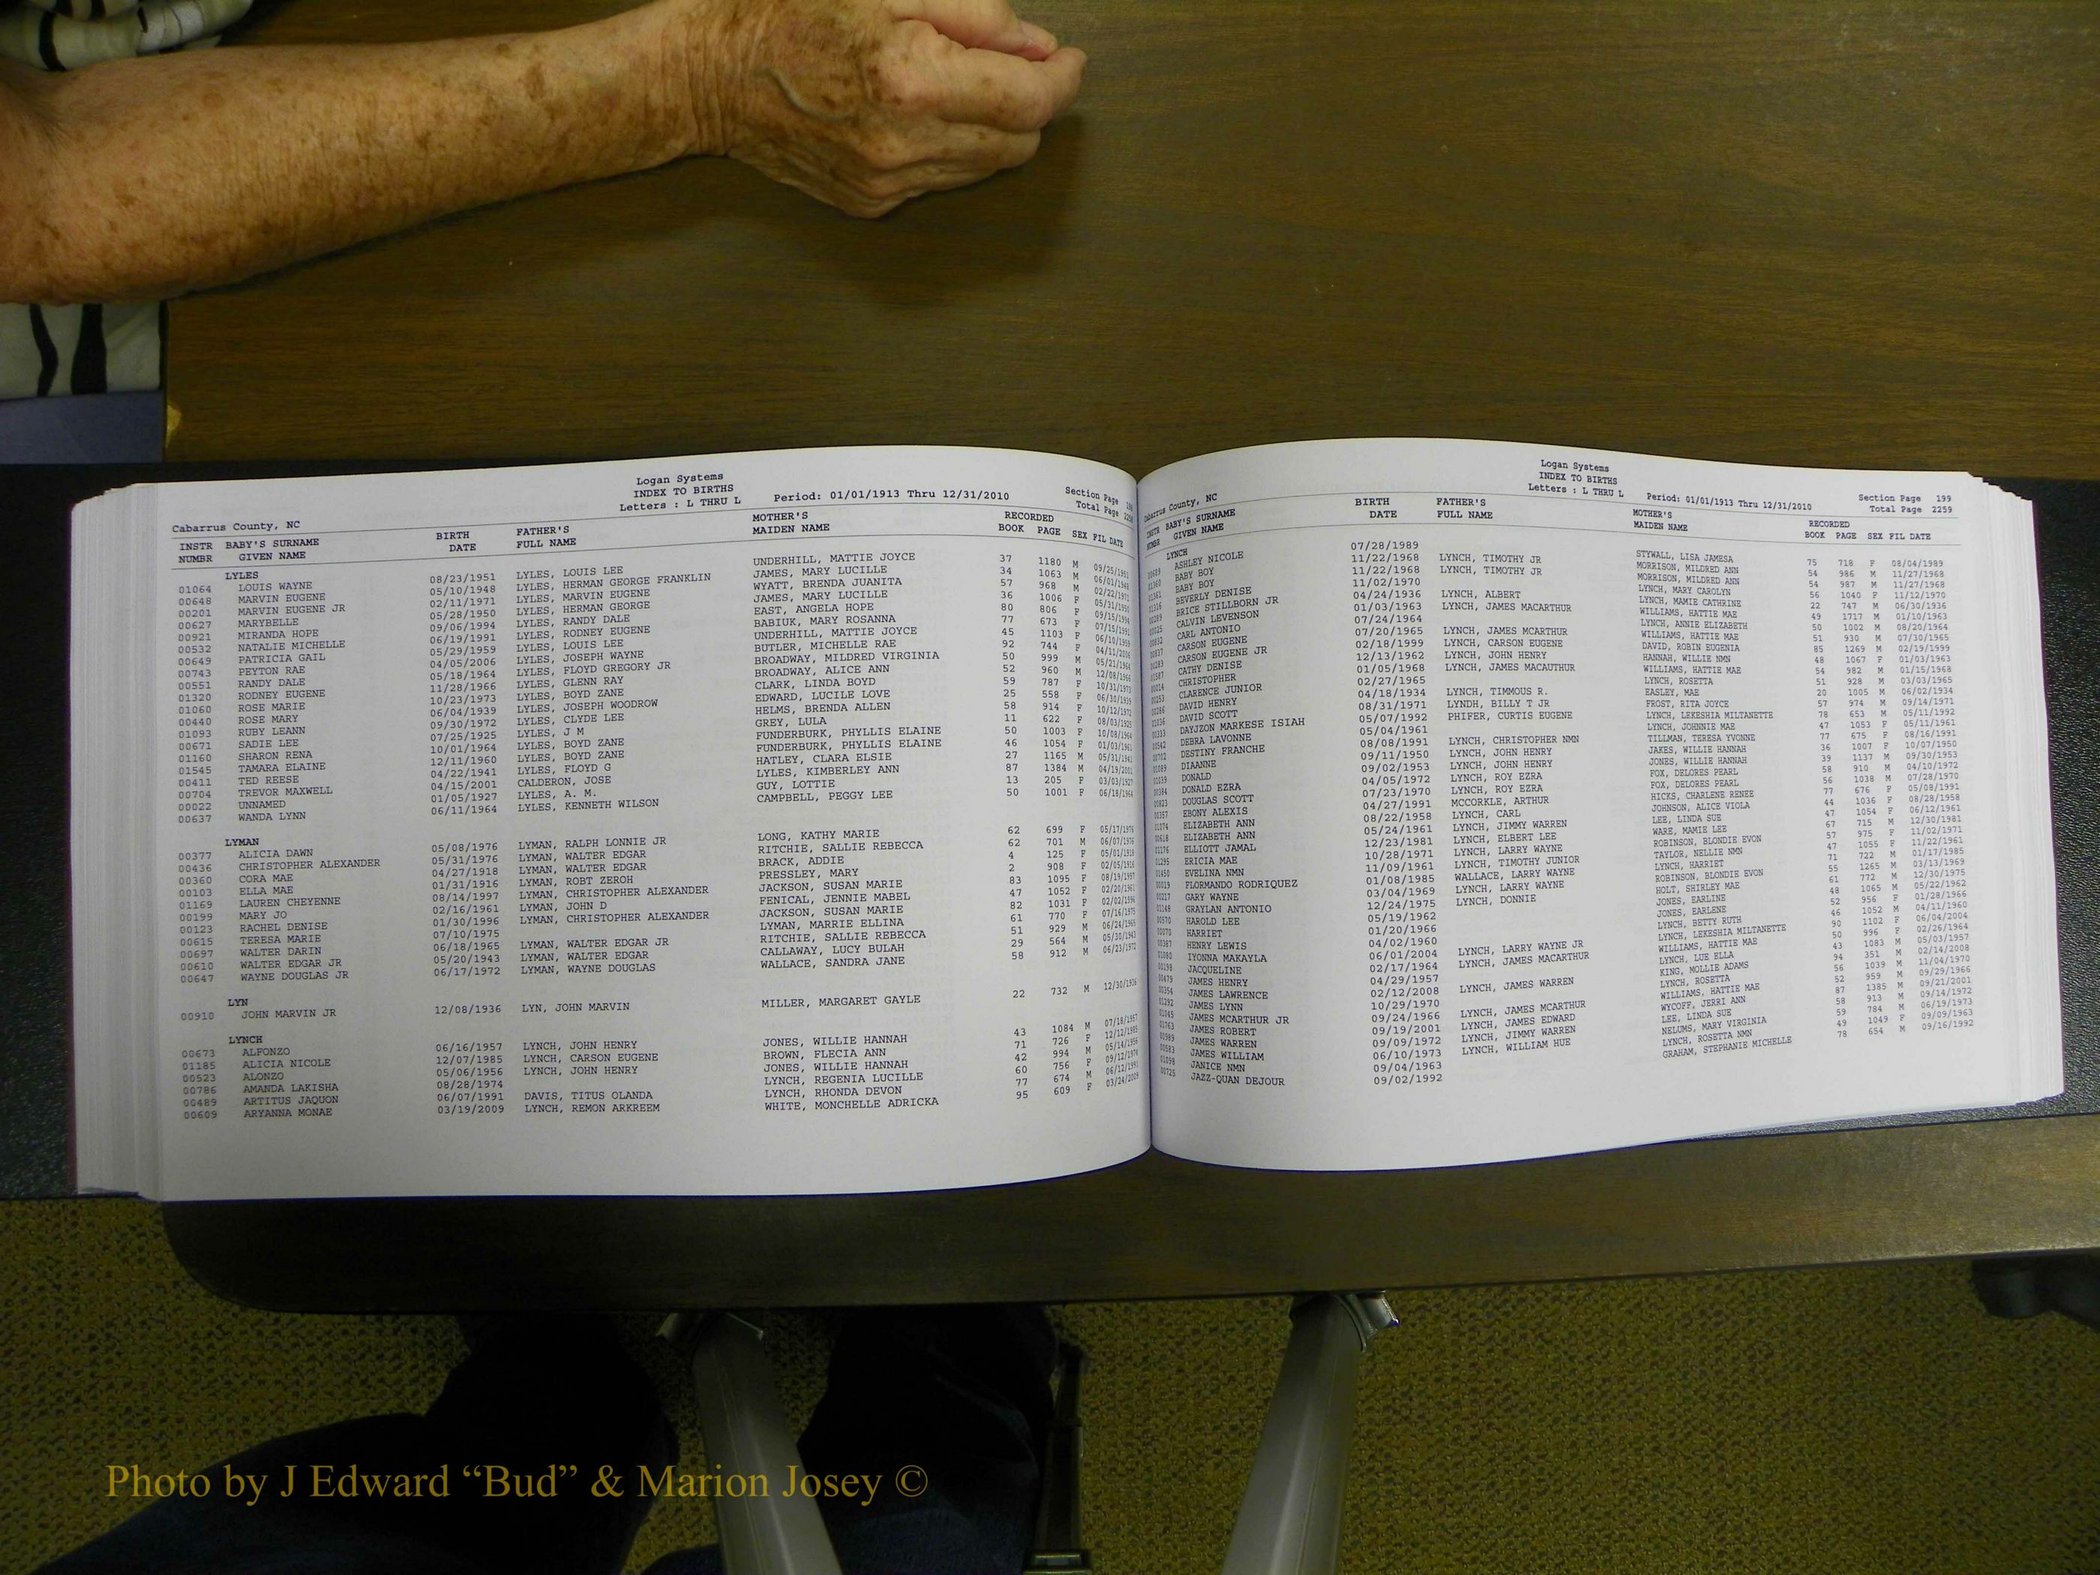 Logan Systems
INDEX TO BIRTHS
Letters : L THRU L Period: 01/01/1913 Thru 12/31/2010 Section Page
Cabarrus County, NC Total Page 2258
INSTR BABY'S SURNAME BIRTH FATHER'S MOTHER'S RECORDED
NUMBR GIVEN NAME DATE FULL NAME MAIDEN NAME BOOK PAGE SEX FIL DATE
LYLES
01064 LOUIS WAYNE 08/23/1951 LYLES, LOUIS LEE UNDERHILL, MATTIE JOYCE 37 1180 M 09/25/1951
00648 MARVIN EUGENE 05/10/1948 LYLES, HERMAN GEORGE FRANKLIN JAMES, MARY LUCILLE 34 1063 M 06/01/1948
00201 MARVIN EUGENE JR 02/11/1971 LYLES, MARVIN EUGENE WYATT, BRENDA JUANITA 57 968 M 02/22/1971
00627 MARYBELLE 05/28/1950 LYLES, HERMAN GEORGE JAMES, MARY LUCILLE 36 1006 F 05/31/1950
00921 MIRANDA HOPE 09/06/1994 LYLES, RANDY DALE EAST, ANGELA HOPE 80 806 F 09/15/1994
00532 NATALIE MICHELLE 06/19/1991 LYLES, RODNEY EUGENE BABIUK, MARY ROSANNA 77 673 F 07/15/1991
00649 PATRICIA GAIL 05/29/1959 LYLES, LOUIS LEE UNDERHILL, MATTIE JOYCE 45 1103 F 06/10/1959
00743 PEYTON RAE 04/05/2006 LYLES, JOSEPH WAYNE BUTLER, MICHELLE RAE 92 744 F 04/11/2006
00551 RANDY DALE 05/18/1964 LYLES, FLOYD GREGORY JR BROADWAY, MILDRED VIRGINIA 50 999 M 05/21/1964
01320 RODNEY EUGENE 11/28/1966 LYLES, GLENN RAY BROADWAY, ALICE ANN 52 960 M 12/08/1966
01060 ROSE MARIE 10/23/1973 LYLES, BOYD ZANE CLARK, LINDA BOYD 59 787 F 10/31/1973
00440 ROSE MARY 06/04/1939 LYLES, JOSEPH WOODROW EDWARD, LUCILE LOVE 25 558 F 06/30/1939
01093 RUBY LEANN 09/30/1972 LYLES, CLYDE LEE HELMS, BRENDA ALLEN 58 914 F 10/12/1972
00671 SADIE LEE 07/25/1925 LYLES, J M GREY, LULA 11 622 F 08/03/1925
01160 SHARON RENA 10/01/1964 LYLES, BOYD ZANE FUNDERBURK, PHYLLIS ELAINE 50 1003 F 10/08/1964
01545 TAMARA ELAINE 12/11/1960 LYLES, BOYD ZANE FUNDERBURK, PHYLLIS ELAINE 46 1054 F 01/03/1961
00411 TED REESE 04/22/1941 LYLES, FLOYD G HATLEY, CLARA ELSIE 27 1165 M 05/31/1941
00704 TREVOR MAXWELL 04/15/2001 CALDERON, JOSE LYLES, KIMBERLEY ANN 87 1384 M 04/19/2001
00022 UNNAMED 01/05/1927 LYLES, A. M. GUY, LOTTIE 13 205 F 03/03/1927
00637 WANDA LYNN 06/11/1964 LYLES, KENNETH WILSON CAMPBELL, PEGGY LEE 50 1001 F 06/18/1964
LYMAN
00377 ALICIA DAWN 05/08/1976 LYMAN, RALPH LONNIE JR LONG, KATHY MARIE 62 699 F 05/17/1976
00436 CHRISTOPHER ALEXANDER 05/31/1976 LYMAN, WALTER EDGAR RITCHIE, SALLIE REBECCA 62 701 M 06/07/1976
00360 CORA MAE 04/27/1918 LYMAN, WALTER EDGAR BRACK, ADDIE 4 125 F 05/01/1918
00103 ELLA MAE 01/31/1916 LYMAN, ROBT ZEROH PRESSLEY, MARY 2 908 F 02/05/1916
01169 LAUREN CHEYENNE 08/14/1997 LYMAN, CHRISTOPHER ALEXANDER JACKSON, SUSAN MARIE 83 1095 F 08/19/1997
00199 MARY JO 02/16/1961 LYMAN, JOHN D FENICAL, JENNIE MABEL 47 1052 F 02/20/1961
00123 RACHEL DENISE 01/30/1996 LYMAN, CHRISTOPHER ALEXANDER JACKSON, SUSAN MARIE 82 1031 F 02/02/1996
00615 TERESA MARIE 07/10/1975 LYMAN, MARRIE ELLINA 61 770 F 07/16/1975
00697 WALTER DARIN 06/18/1965 LYMAN, WALTER EDGAR JR RITCHIE, SALLIE REBECCA 51 929 M 06/24/1965
00610 WALTER EDGAR JR 05/20/1943 LYMAN, WALTER EDGAR CALLAWAY, LUCY BULAH 29 564 M 05/30/1943
00647 WAYNE DOUGLAS JR 06/17/1972 LYMAN, WAYNE DOUGLAS WALLACE, SANDRA JANE 58 912 M 06/23/1972
LYN
00910 JOHN MARVIN JR 12/08/1936 LYN, JOHN MARVIN MILLER, MARGARET GAYLE 22 732 M 12/30/1936
LYNCH
00673 ALFONZO 06/16/1957 LYNCH, JOHN HENRY JONES, WILLIE HANNAH 43 1084 M 07/18/1957
01185 ALICIA NICOLE 12/07/1985 LYNCH, CARSON EUGENE BROWN, FLECIA ANN 71 726 F 12/12/1985
00523 ALONZO 05/06/1956 LYNCH, JOHN HENRY JONES, WILLIE HANNAH 42 994 M 05/14/1956
00786 AMANDA LAKISHA 08/28/1974 LYNCH, REGENIA LUCILLE 60 756 F 09/12/1974
00489 ARTITUS JAQUON 06/07/1991 DAVIS, TITUS OLANDA LYNCH, RHONDA DEVON 77 674 M 06/12/1991
00609 ARYANNA MONAE 03/19/2009 LYNCH, REMON ARKREEM WHITE, MONCHELLE ADRICKA 95 609 F 03/24/2009
Logan Systems
INDEX TO BIRTHS
Letters : L THRU L Period: 01/01/1913 Thru 12/31/2010 Section Page 199
Cabarrus County, NC Total Page 2259
INSTR BABY'S SURNAME BIRTH FATHER'S MOTHER'S RECORDED
NUMBR GIVEN NAME DATE FULL NAME MAIDEN NAME BOOK PAGE SEX FIL DATE
LYNCH
ASHLEY NICOLE 07/28/1989 STYWALL, LISA JAMESA 75 718 F 08/04/1989
BABY BOY 11/22/1968 LYNCH, TIMOTHY JR MORRISON, MILDRED ANN 54 986 M 11/27/1968
BABY BOY 11/22/1968 LYNCH, TIMOTHY JR MORRISON, MILDRED ANN 54 987 M 11/27/1968
BEVERLY DENISE 11/02/1970 LYNCH, MARY CAROLYN 56 1040 F 11/12/1970
BRICE STILLBORN JR 04/24/1936 LYNCH, ALBERT LYNCH, MAMIE CATHRINE 22 747 M 06/30/1936
CALVIN LEVENSON 01/03/1963 LYNCH, JAMES MACARTHUR WILLIAMS, HATTIE MAE 49 1717 M 01/10/1963
CARL ANTONIO 07/24/1964 LYNCH, ANNIE ELIZABETH 50 1002 M 08/20/1964
CARSON EUGENE 07/20/1965 LYNCH, JAMES MCARTHUR WILLIAMS, HATTIE MAE 51 930 M 07/30/1965
CARSON EUGENE JR 02/18/1999 LYNCH, CARSON EUGENE DAVID, ROBIN EUGENIA 85 1269 M 02/19/1999
CATHY DENISE 12/13/1962 LYNCH, JOHN HENRY HANNAH, WILLIE NMN 48 1067 F 01/03/1963
CHRISTOPHER 01/05/1968 LYNCH, JAMES MACAUTHUR WILLIAMS, HATTIE MAE 54 982 M 01/15/1968
CLARENCE JUNIOR 02/27/1965 LYNCH, ROSETTA 51 928 M 03/03/1965
DAVID HENRY 04/18/1934 LYNCH, TIMMOUS R. EASLEY, MAE 20 1005 M 06/02/1934
DAVID SCOTT 08/31/1971 LYNDH, BILLY T JR FROST, RITA JOYCE 57 974 M 09/14/1971
DAYJZON MARKESE ISIAH 05/07/1992 PHIFER, CURTIS EUGENE LYNCH, LEKESHIA MILTANETTE 78 653 M 05/11/1992
DEBRA LAVONNE 05/04/1961 LYNCH, JOHNNIE MAE 47 1053 F 05/11/1961
DESTINY FRANCHE 08/08/1991 LYNCH, CHRISTOPHER NMN TILLMAN, TERESA YVONNE 77 675 F 08/16/1991
DIAANNE 09/11/1950 LYNCH, JOHN HENRY JAKES, WILLIE HANNAH 36 1007 F 10/07/1950
DONALD 09/02/1953 LYNCH, JOHN HENRY JONES, WILLIE HANNAH 39 1137 M 09/30/1953
DONALD EZRA 04/05/1972 LYNCH, ROY EZRA FOX, DELORES PEARL 58 910 M 04/10/1972
DOUGLAS SCOTT 07/23/1970 LYNCH, ROY EZRA FOX, DELORES PEARL 56 1038 M 07/28/1970
EBONY ALEXIS 04/27/1991 MCCORKLE, ARTHUR HICKS, CHARLENE RENEE 77 676 F 05/08/1991
ELIZABETH ANN 08/22/1958 LYNCH, CARL JOHNSON, ALICE VIOLA 44 1036 F 08/28/1958
ELIZABETH ANN 05/24/1961 LYNCH, JIMMY WARREN LEE, LINDA SUE 47 1054 F 06/12/1961
ELLIOTT JAMAL 12/23/1981 LYNCH, ELBERT LEE WARE, MAMIE LEE 67 715 M 12/30/1981
ERICIA MAE 10/28/1971 LYNCH, LARRY WAYNE ROBINSON, BLONDIE EVON 57 975 F 11/02/1971
EVELINA NMN 11/09/1961 LYNCH, TIMOTHY JUNIOR TAYLOR, NELLIE NMN 47 1055 F 11/22/1961
FLORMANDO RODRIQUEZ 01/08/1985 WALLACE, LARRY WAYNE LYNCH, HARRIET 71 722 M 01/17/1985
GARY WAYNE 03/04/1969 LYNCH, LARRY WAYNE ROBINSON, BLONDIE EVON 55 1265 M 03/13/1969
GRAYLAN ANTONIO 12/24/1975 LYNCH, DONNIE HOLT, SHIRLEY MAE 61 772 M 12/30/1975
HAROLD LEE 05/19/1962 JONES, EARLINE 48 1065 M 05/22/1962
HARRIET 01/20/1966 JONES, EARLENE 52 956 F 01/28/1966
HENRY LEWIS 04/02/1960 LYNCH, BETTY RUTH 46 1052 M 04/11/1960
IYONNA MAKAYLA 06/01/2004 LYNCH, LARRY WAYNE JR LYNCH, LEKESHIA MILTANETTE 90 1102 F 06/04/2004
JACQUELINE 02/17/1964 LYNCH, JAMES MACARTHUR WILLIAMS, HATTIE MAE 50 996 F 02/26/1964
JAMES HENRY 04/29/1957 LYNCH, LUE ELLA 43 1083 M 05/03/1957
JAMES LAWRENCE 02/12/2008 LYNCH, JAMES WARREN KING, MOLLIE ADAMS 94 351 M 02/14/2008
JAMES LYNN 10/29/1970 LYNCH, ROSETTA 56 1039 M 11/04/1970
JAMES MCARTHUR JR 09/24/1966 LYNCH, JAMES MCARTHUR WILLIAMS, HATTIE MAE 52 959 M 09/29/1966
JAMES ROBERT 09/19/2001 LYNCH, JAMES EDWARD WYCOFF, JERRI ANN 87 1385 M 09/21/2001
JAMES WARREN 09/09/1972 LYNCH, JIMMY WARREN LEE, LINDA SUE 58 913 M 09/14/1972
JAMES WILLIAM 06/10/1973 LYNCH, WILLIAM HUE NELUMS, MARY VIRGINIA 59 784 M 06/19/1973
JANICE NMN 09/04/1963 LYNCH, ROSETTA NMN 49 1049 F 09/09/1963
JAZZ-QUAN DEJOUR 09/02/1992 GRAHAM, STEPHANIE MICHELLE 78 654 M 09/16/1992
Photo by J Edward “Bud” & Marion Josey ©